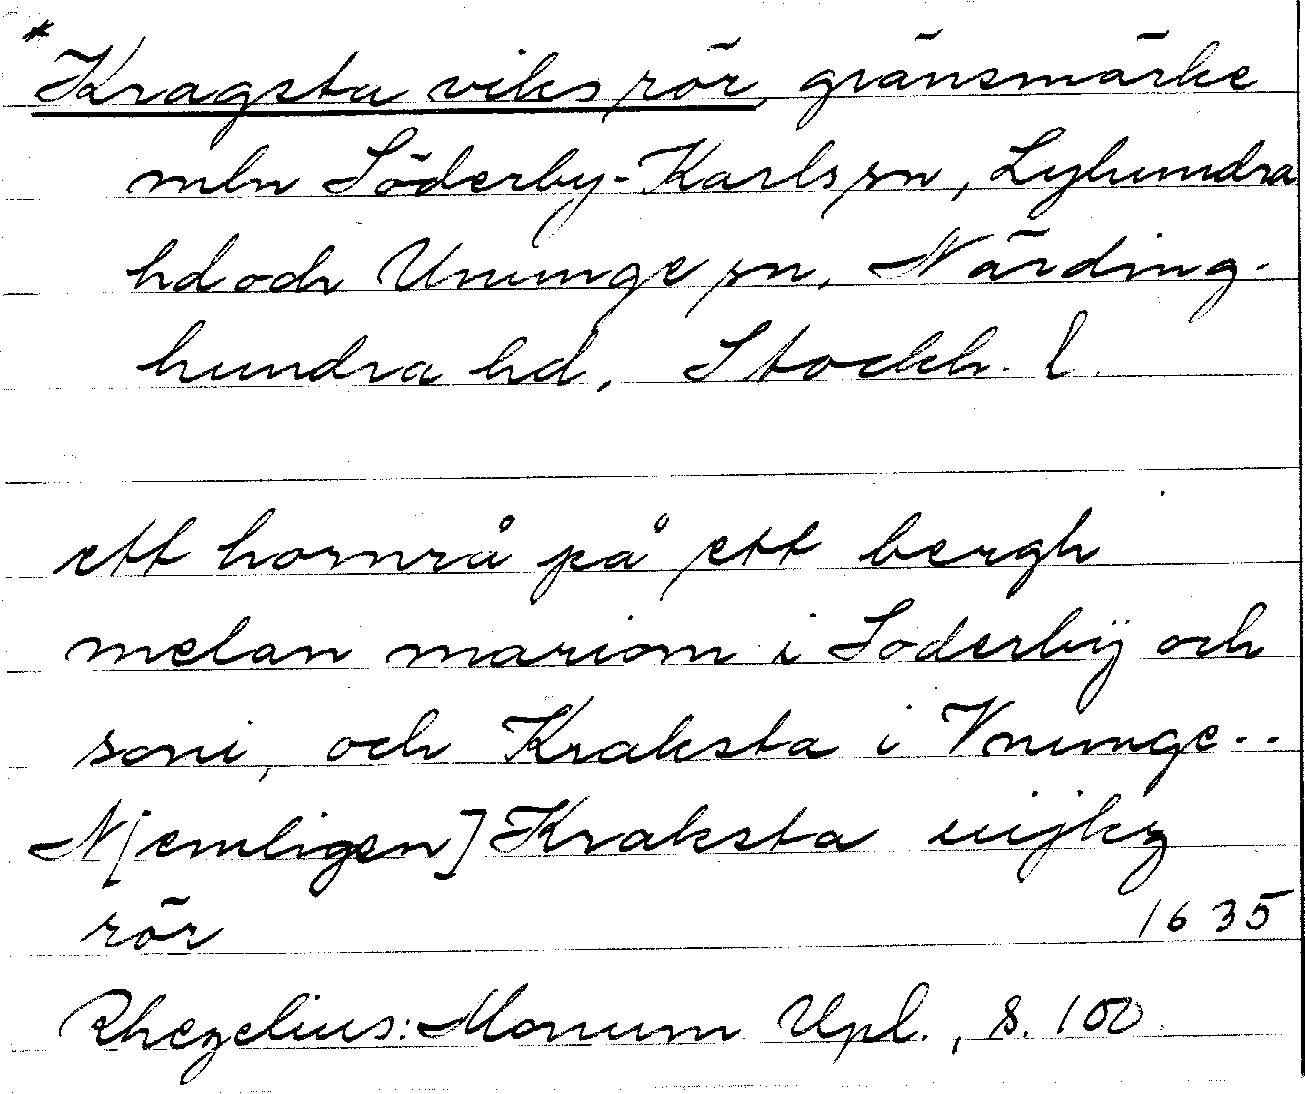 *Kragsta viks rör, gränsmärke
mln Söderby-Karls sn, Lyhundra
hd och Ununge sn, Närding-
hundra hd, Stockh. l.
ett hörnrå på ett bergh
melan mariom i Söderbÿ och
soni, och Kraksta i Vnunge..
N[emligen] Kraksta uijkz
rör 1635
Rhezelius: Monum Upl., s. 100.